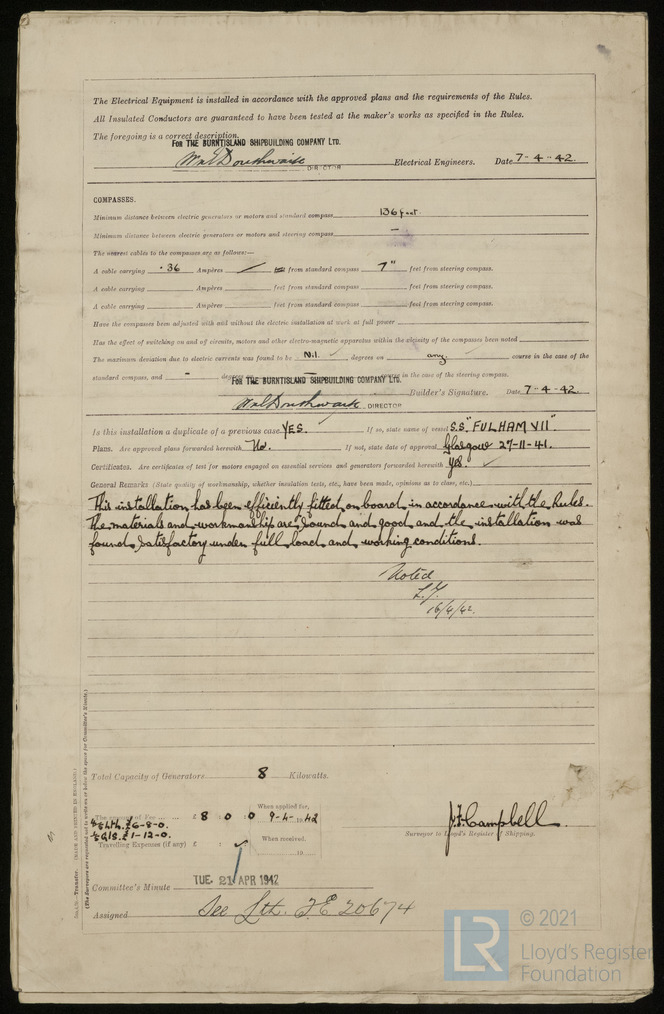 The Electrical Equipment is installed in accordance with the approved plans and the requirements of the Rules.
All Insulated Conductors are guaranteed to have been tested at the maker's works as specified in the Rules.
The foregoing is a correct description.
FOR THE BURNTISLAND SHIPBUILDING COMPANY LTD.
DIRECTOR Electrical Engineers. Date 7-4-42.
COMPASSES.
Minimum distance between electric generators or motors and standard compass 136 feet
Minimum distance between electric generators or motors and steering compass —
The nearest cables to the compasses are as follows:—
A cable carrying .36 Ampères feet from standard compass 7" feet from steering compass.
A cable carrying Ampères feet from standard compass feet from steering compass.
A cable carrying Ampères feet from standard compass feet from steering compass.
Have the compasses been adjusted with and without the electric installation at work at full power
Has the effect of switching on and off circuits, motors and other electro-magnetic apparatus within the vicinity of the compasses been noted
The maximum deviation due to electric currents was found to be Nil degrees on any course in the case of the
standard compass, and - degrees on course in the case of the steering compass.
FOR THE BURNTISLAND SHIPBUILDING COMPANY LTD.
DIRECTOR Builder's Signature. Date 7-4-42.
Is this installation a duplicate of a previous case YES. If so, state name of vessel S.S. "FULHAM VII"
Plans. Are approved plans forwarded herewith No. If not, state date of approval Glasgow 27-11-41.
Certificates. Are certificates of test for motors engaged on essential services and generators forwarded herewith Yes.
General Remarks (State quality of workmanship, whether insulation tests, etc., have been made, opinions as to class, etc.)
This installation has been efficiently fitted on board in accordance with the Rules.
The materials and workmanship are sound and good and the installation was
found satisfactory under full load and working conditions.
Noted
16/4/42.
Total Capacity of Generators 8 Kilowatts.
When applied for,
The amount of Fee ... £ 8 0 0 9-4-1942
Lth. £6-8-0.
Gls. £1-12-0.
J.F. Campbell.
Surveyor to Lloyd's Register of Shipping.
Travelling Expenses (if any) £ When received,
19
Committee's Minute TUE. 21 APR 1942
Assigned See Lth. F.E 20674
(The Surveyors are requested not to write on or below the space for Committee's Minute.)
Transfer. (MADE AND PRINTED IN ENGLAND.)
LR © 2021
Lloyd's Register
Foundation